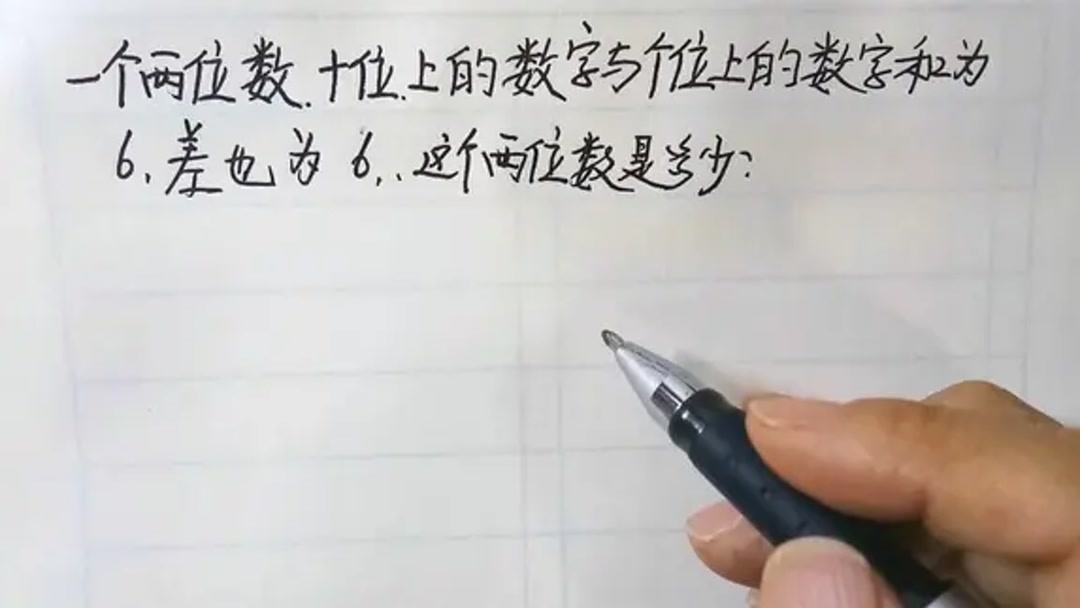 一个两位数.十位上的数字与个位上的数字和为
6.差也为6..这个两位数是多少?